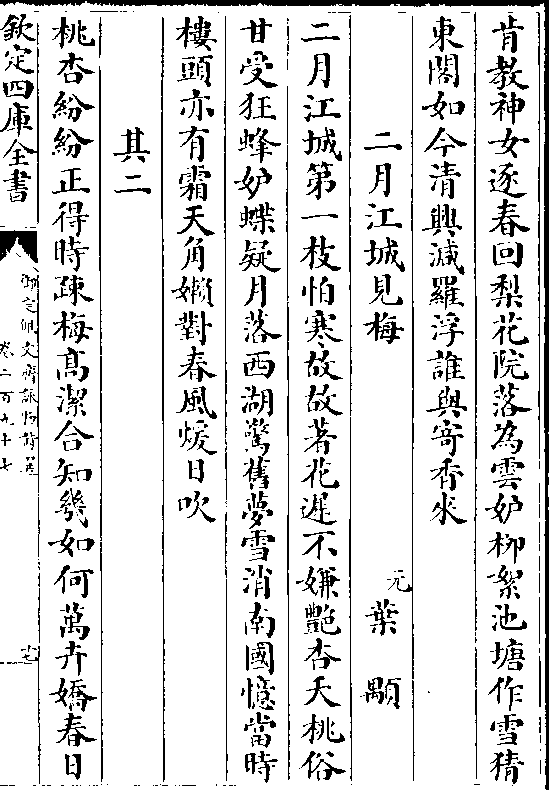 肯教神女逐春回梨花院落為雲妒柳絮池塘作雪猜
東閣如今清興減羅浮誰與寄香來
二月江城見梅
元葉顒
二月江城第一枝怕寒故故著花遲不嫌艷杏夭桃俗
甘受狂蜂妒蝶疑月落西湖驚舊夢雪消南國憶當時
樓頭亦有霜天角嬾對春風煖日吹
其二
桃杏紛紛正得時疎梅髙潔合知幾如何萬卉嬌春日
欽定四庫全書
御定佩文齋詠物詩選
卷二百九十七